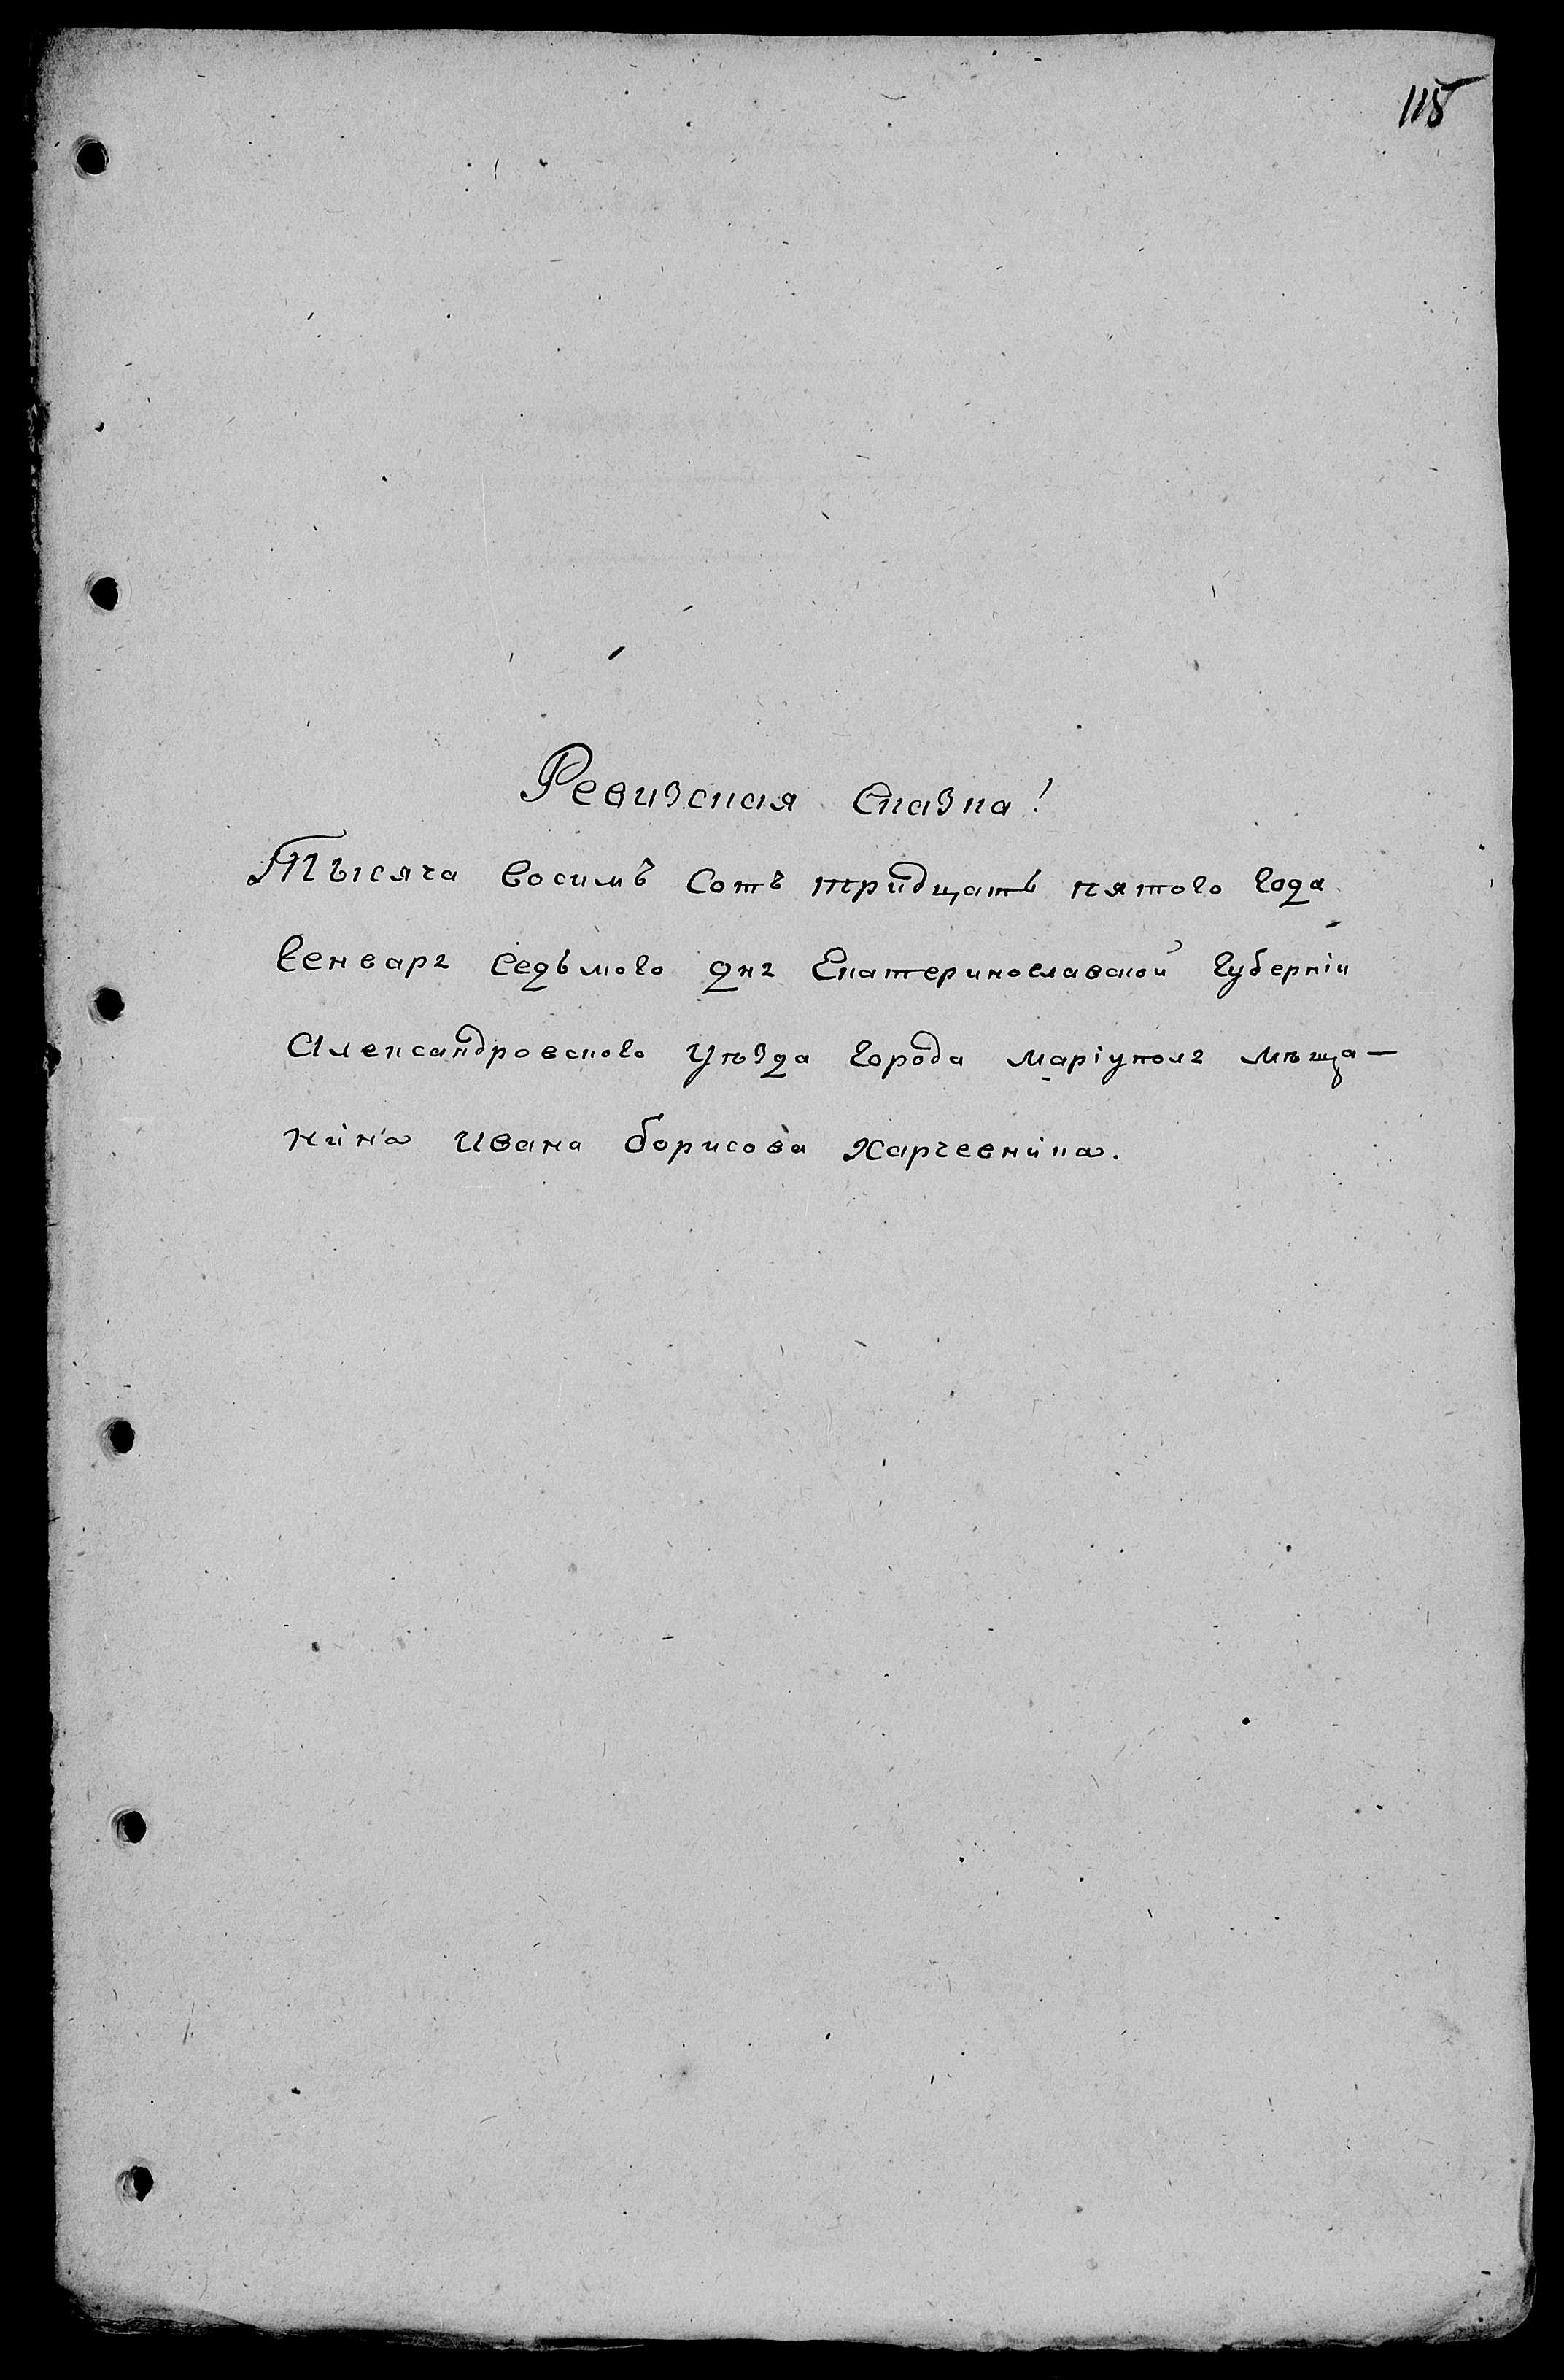 115
Ревизская Сказка!
Тысяча восимъ Сотъ тридцать пятого года
Генваря Седьмого дня Екатеринославской Губерніи
Александровского Уѣзда Города Маріуполя мѣща—
нина Ивана Борисова Харчевника.